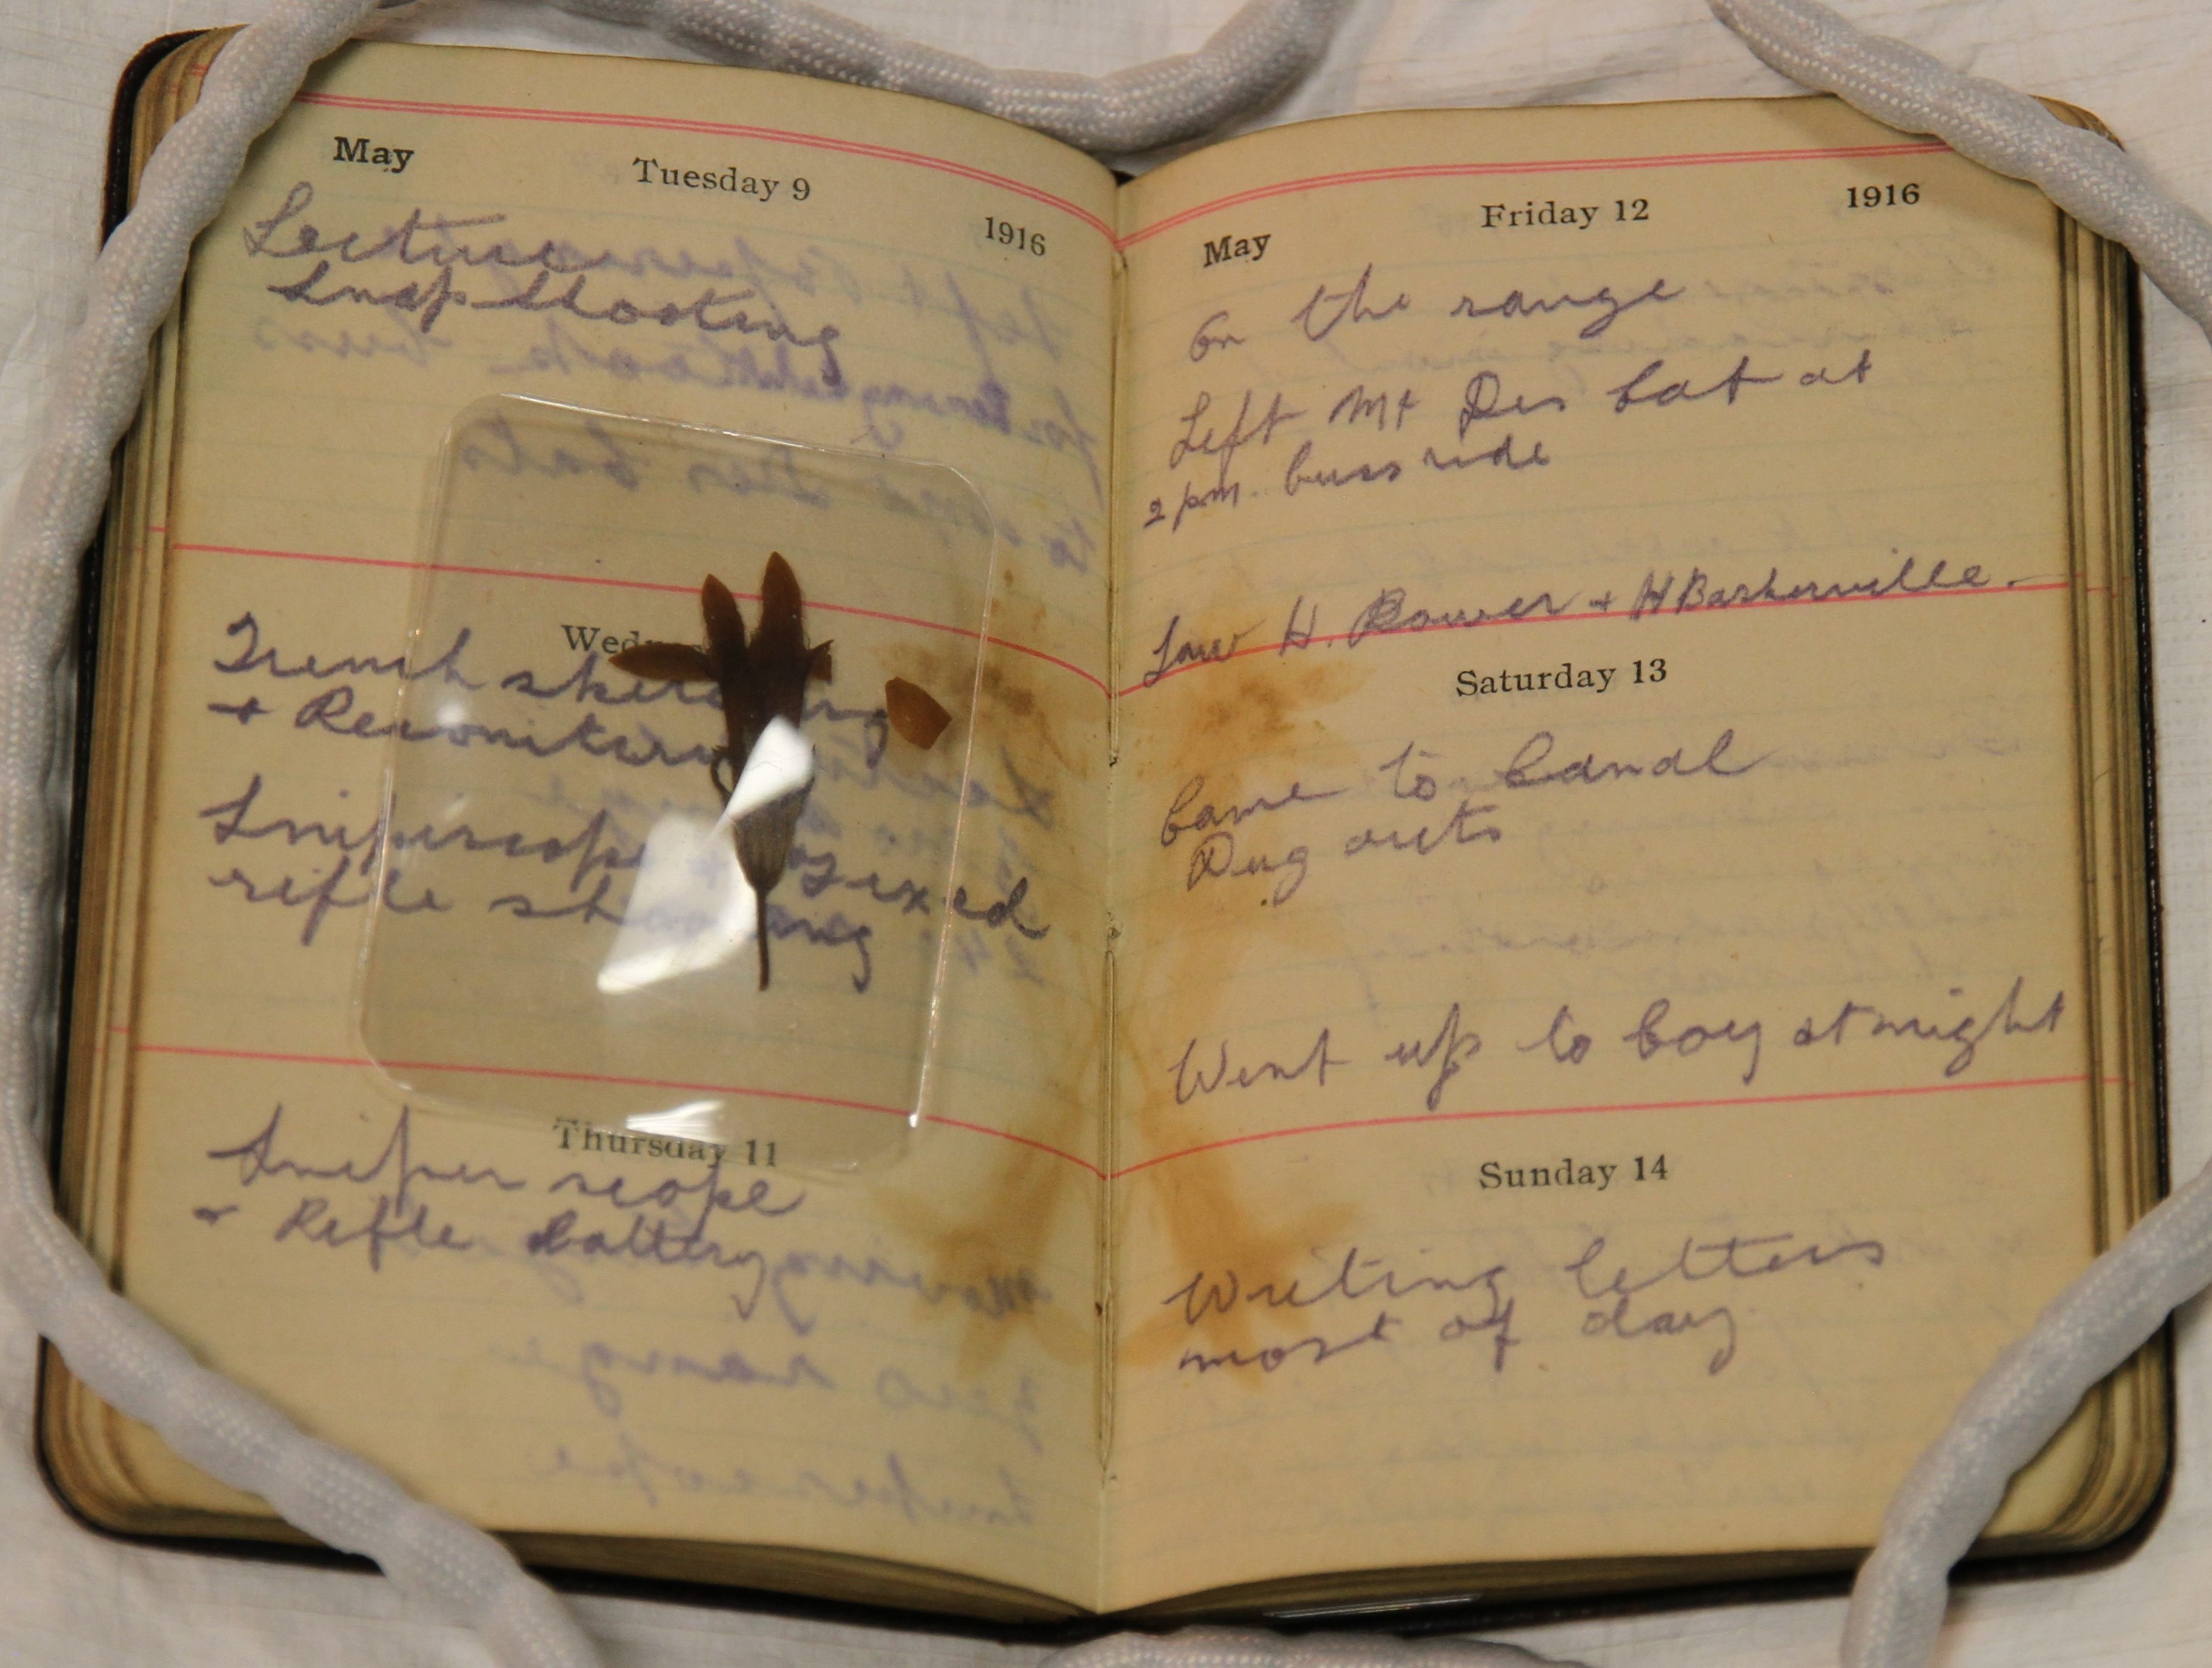 May
Tuesday 9
1916
Lecture
Snap Shooting
Wed
Trench
+ Reconitering
Sniperscope + Fixed
rifle shooting
Thursday 11
Sniper scope
+ Rifle Battery
May
Friday 12
1916
On the range
Left Mt Des Cat at
2 pm. buss ride
Saw H. Rower + H Baskerville.
Saturday 13
Came to Canal
Dug outs
Went up to Coy at night
Sunday 14
Writing letters
most of day